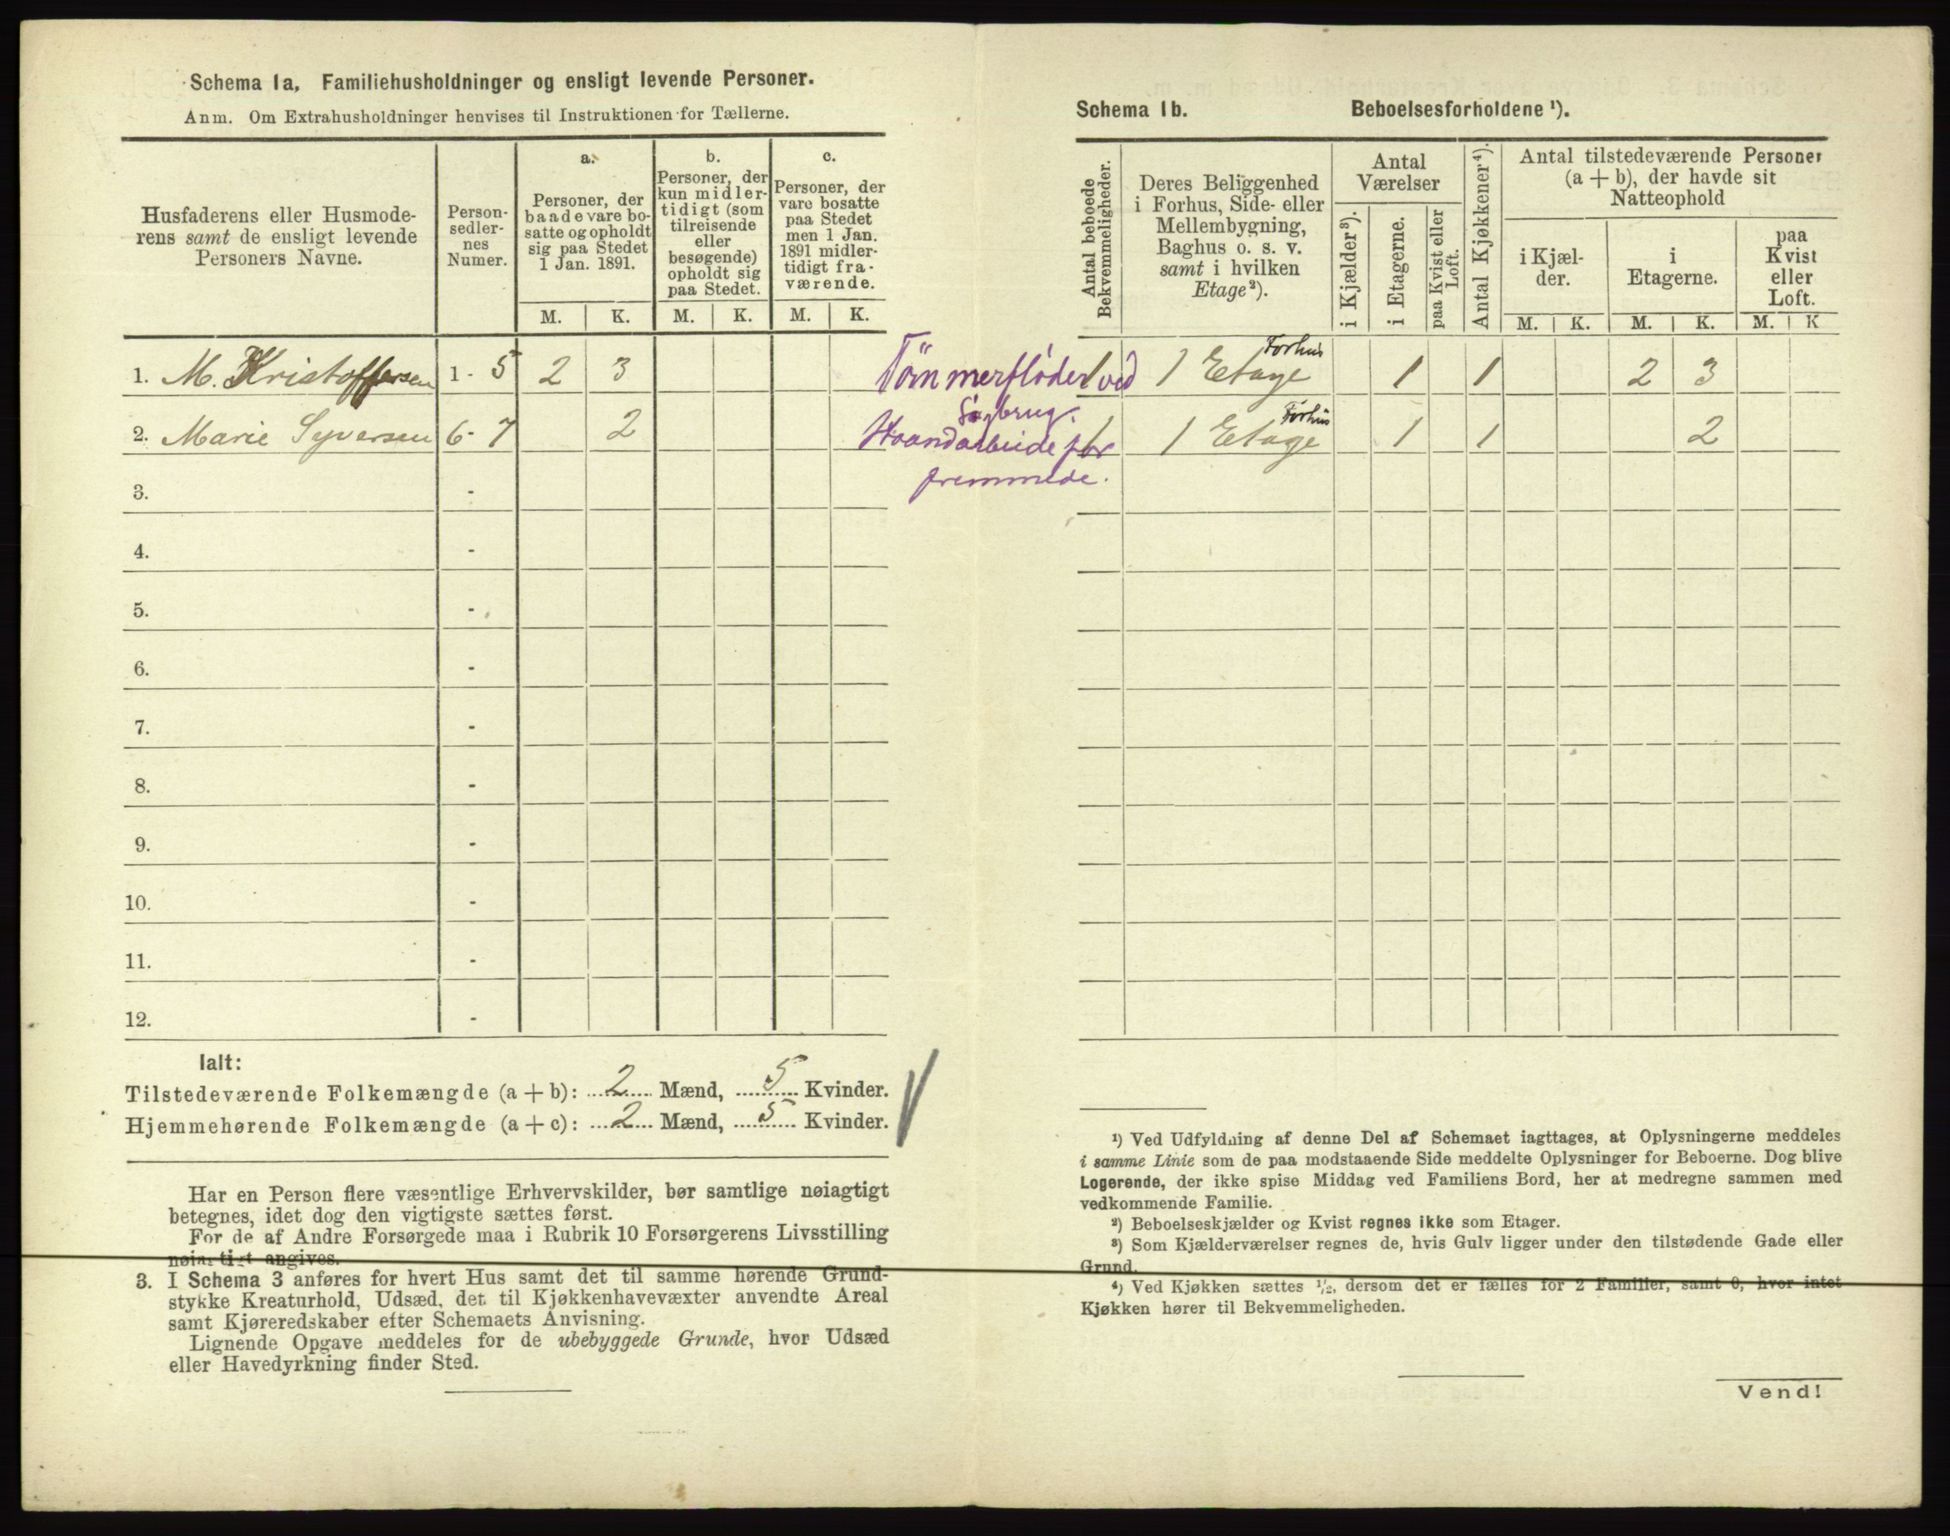 Schema 1a, Familiehusholdninger og ensligt levende Personer.
Anm. Om Extrahusholdninger henvises til Instruktionen for Tællerne.
Husfaderens eller Husmode-
rens samt de ensligt levende
Personers Navne.
Person-
sedler-
nes
Numer.
a.
Personer, der
baade vare bo-
satte og opholdt
sig paa Stedet
1 Jan. 1891.
b.
Personer, der
kun midler-
tidigt (som
tilreisende
eller
besøgende)
opholdt sig
paa Stedet.
c.
Personer, der
vare bosatte
paa Stedet
men 1 Jan.
1891 midler-
tidigt fra-
værende.
M. K. M. K. M. K.
1. M. Kristoffersen 1 - 5 2 3
2. Marie Syversen 6 - 7 2
3. -
4. -
5. -
6. -
7. -
8. -
9. -
10. -
11. -
12. -
Ialt:
Tilstedeværende Folkemængde (a + b): 2 Mænd, 5 Kvinder.
Hjemmehørende Folkemængde (a + c): 2 Mænd, 5 Kvinder.
Har en Person flere væsentlige Erhvervskilder, bør samtlige nøiagtigt
betegnes, idet dog den vigtigste sættes først.
For de af Andre Forsørgede maa i Rubrik 10 Forsørgerens Livsstilling
nøiagtigt angives.
3. I Schema 3 anføres for hvert Hus samt det til samme hørende Grund-
stykke Kreaturhold, Udsæd, det til Kjøkkenhavevæxter anvendte Areal
samt Kjøreredskaber efter Schemaets Anvisning.
Lignende Opgave meddeles for de ubebyggede Grunde, hvor Udsæd
eller Havedyrkning finder Sted.
Schema 1b. Beboelsesforholdene ¹).
Antal beboede
Bekvemmeligheder.
Deres Beliggenhed
i Forhus, Side- eller
Mellembygning,
Baghus o. s. v.
samt i hvilken
Etage²).
Antal
Værelser
i Kjælder³).
i Etagerne.
paa Kvist eller
Loft.
Antal Kjøkkener⁴).
Antal tilstedeværende Personer
(a + b), der havde sit
Natteophold
i Kjæl-
der.
i
Etagerne.
paa
Kvist
eller
Loft.
M. K. M. K. M. K
Tömmerflöder ved
Sagbrug.
1 1 Etage Forhus 1 1 2 3
Haandarbeide for
fremmede.
1 1 Etage Forhus 1 1 2
¹) Ved Udfyldning af denne Del af Schemaet iagttages, at Oplysningerne meddeles
i samme Linie som de paa modstaaende Side meddelte Oplysninger for Beboerne. Dog blive
Logerende, der ikke spise Middag ved Familiens Bord, her at medregne sammen med
vedkommende Familie.
²) Beboelseskjælder og Kvist regnes ikke som Etager.
³) Som Kjælderværelser regnes de, hvis Gulv ligger under den tilstødende Gade eller
Grund.
⁴) Ved Kjøkken sættes ¹/₂, dersom det er fælles for 2 Familier, samt 0, hvor intet
Kjøkken hører til Bekvemmeligheden.
Vend!